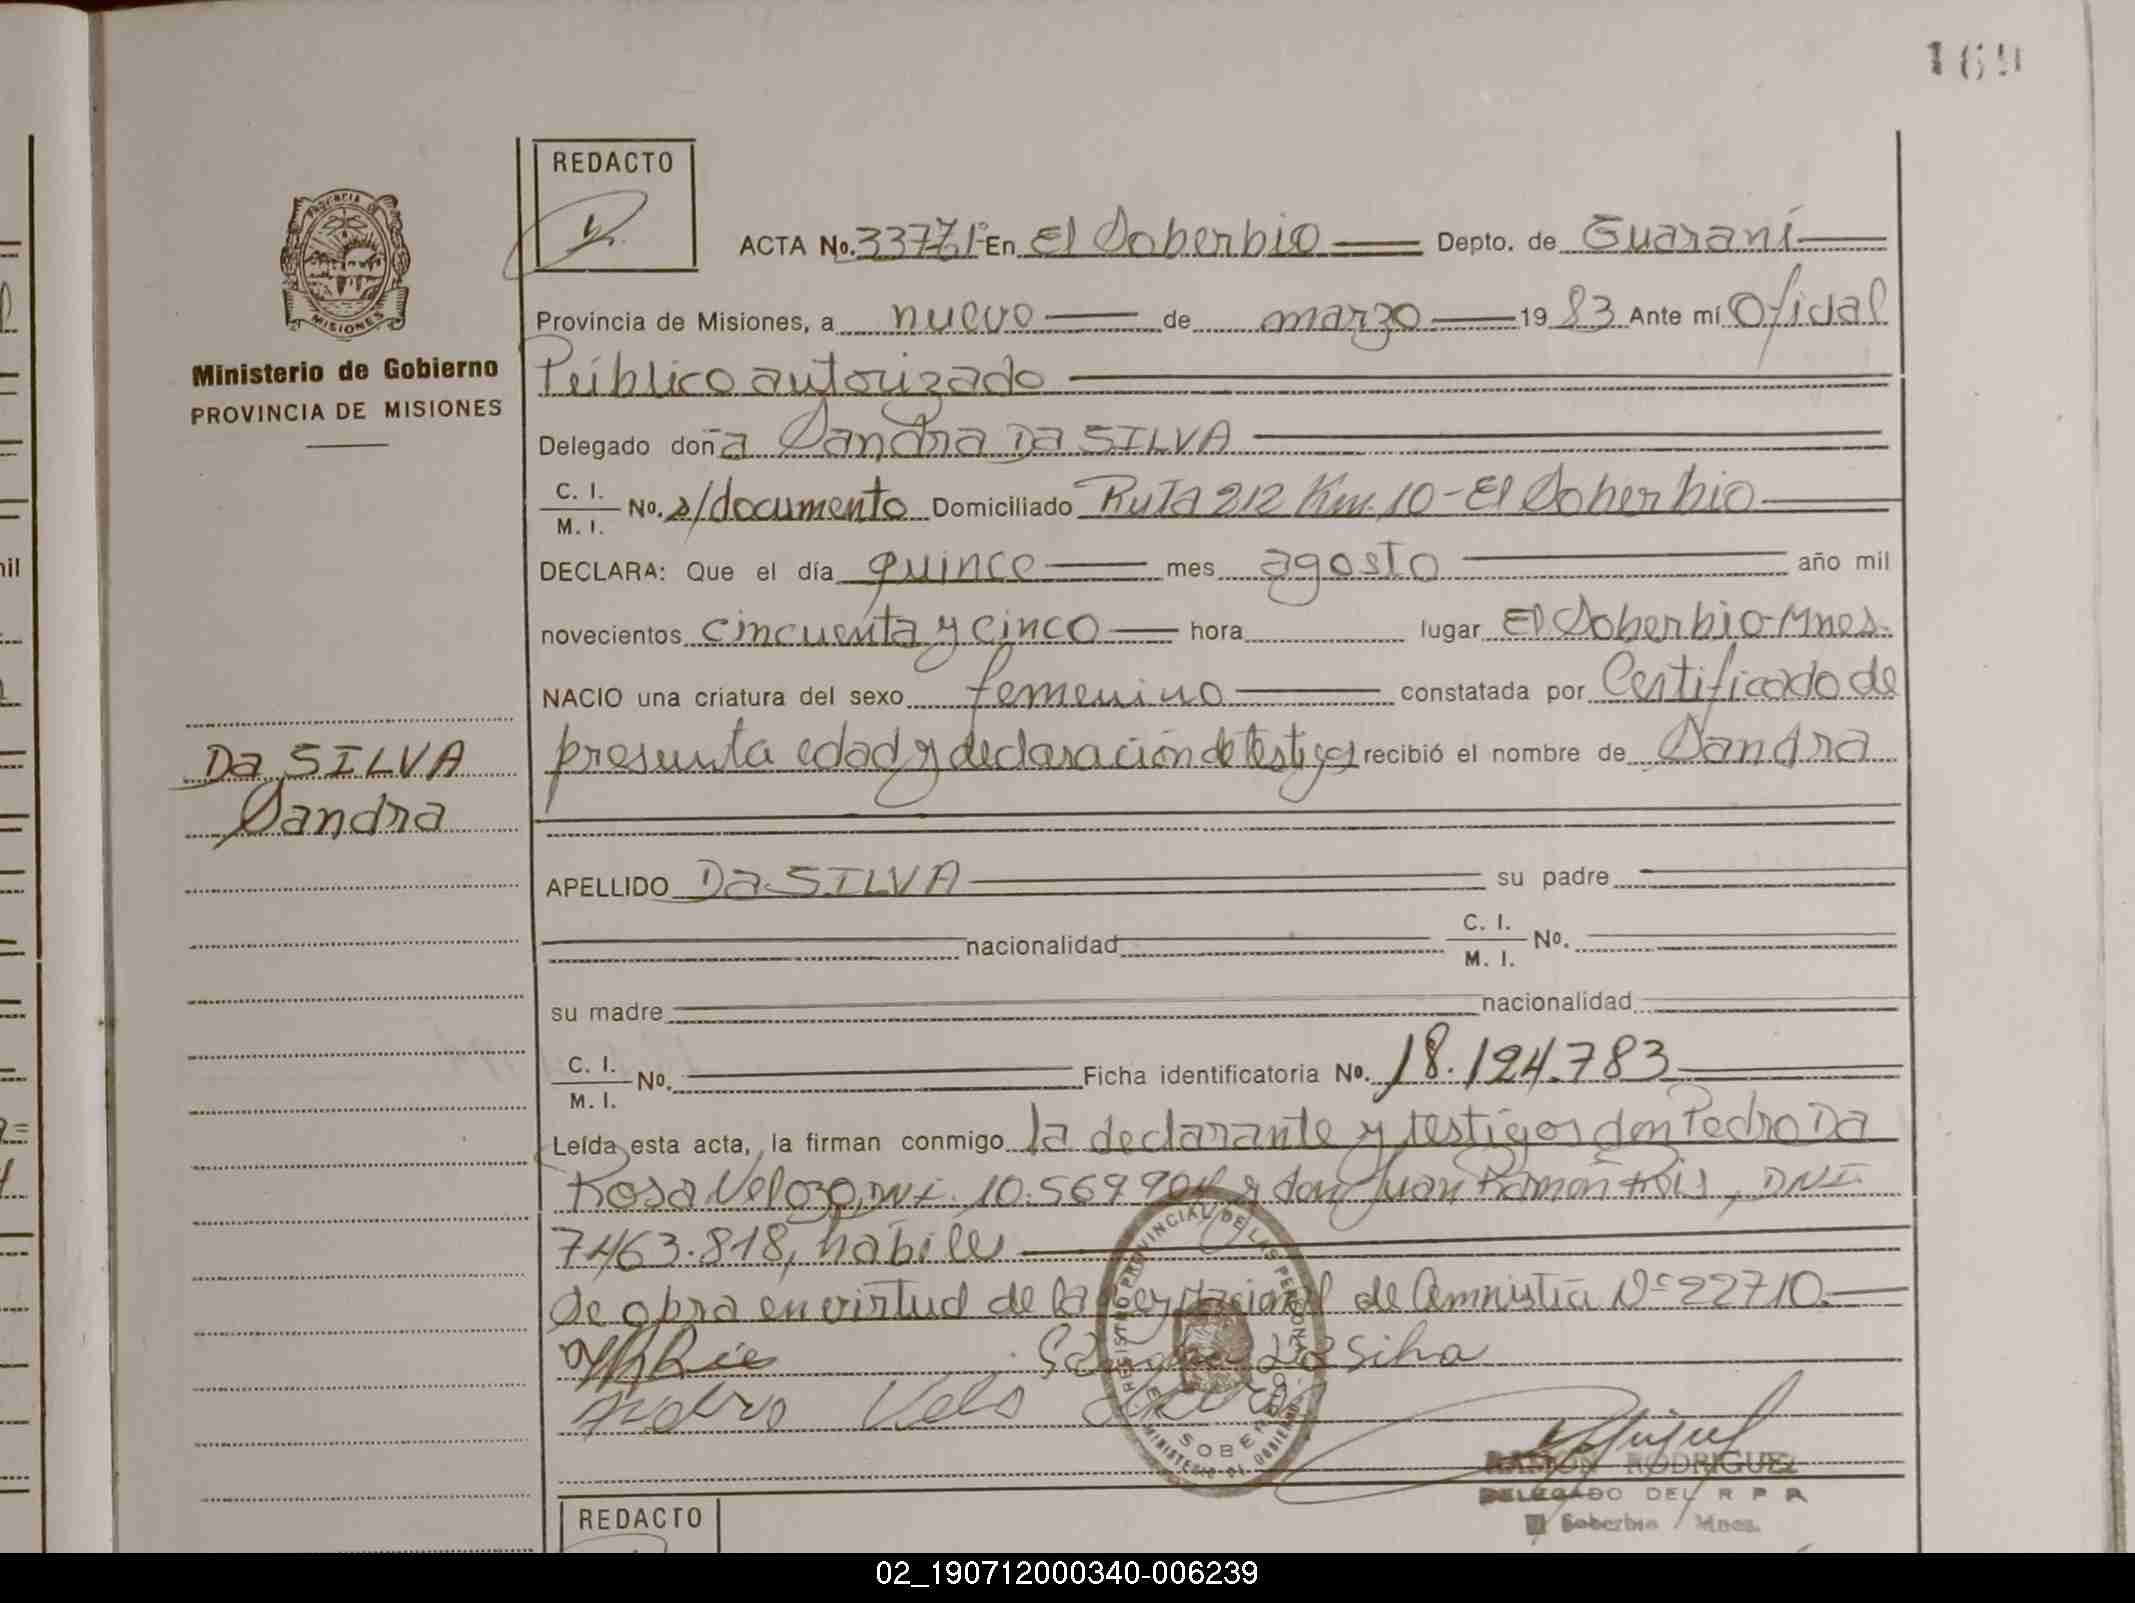 169
REDACTO
PROVINCIA DE
MISIONES
Ministerio de Gobierno
PROVINCIA DE MISIONES
ACTA No. 337 En El Soberbio Depto. de Guaraní
Provincia de Misiones, a nueve de marzo 1983 Ante mí Oficial
Público autorizado
Delegado doña Sandra Da SILVA
C. I. / M. I. No. s/documento Domiciliado Ruta 212 Km. 10 - El Soberbio
DECLARA: Que el día quince mes agosto año mil
novecientos cincuenta y cinco hora lugar El Soberbio-Mnes.
NACIO una criatura del sexo femenino constatada por Certificado de
presunta edad y declaración de testigos recibió el nombre de Sandra
Da SILVA
Sandra
APELLIDO Da SILVA su padre
nacionalidad C. I. / M. I. No.
su madre nacionalidad
C. I. / M. I. No. Ficha identificatoria No. 18.124.783
Leída esta acta, la firman conmigo la declarante y testigos don Pedro Da
Rosa Velozo, DNI. 10.569.904 y don Juan Ramón, DNI
7463.818, habiles
Se obra en virtud de la Ley Nacional de Amnistia Nº 22710.
Da Silva
REGISTRO PROVINCIAL DE LAS PERSONAS
MINISTERIO DE GOBIERNO
RAMON RODRIGUEZ
DELEGADO DEL R P P
El Soberbio Mnes.
REDACTO
02_190712000340-006239